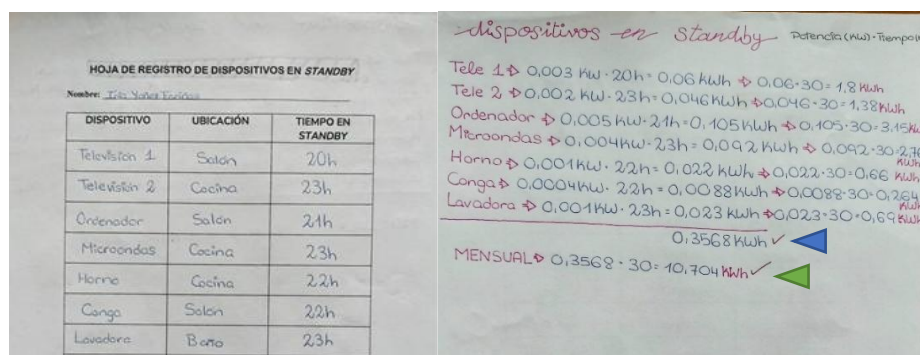 HOJA DE REGISTRO DE DISPOSITIVOS EN STANDBY
Nombre:
DISPOSITIVO UBICACIÓN TIEMPO EN STANDBY
Televisión 1 Salón 20h
Televisión 2 Cocina 23h
Ordenador Salón 21h
Microondas Cocina 23h
Horno Cocina 22h
Conga Salón 22h
Lavadora Baño 23h
dispositivos en standby Potencia (KW)·Tiempo
Tele 1 → 0,003 KW · 20h = 0,06 KWh → 0,06·30 = 1,8 KWh
Tele 2 → 0,002 KW · 23h = 0,046 KWh → 0,046·30 = 1,38 KWh
Ordenador → 0,005 KW · 21h = 0,105 KWh → 0,105·30 = 3,15 KW
Microondas → 0,004 KW · 23h = 0,092 KWh → 0,092·30 = 2,76 KWh
Horno → 0,001 KW · 22h = 0,022 KWh → 0,022·30 = 0,66 KWh
Conga → 0,0004 KW · 22h = 0,0088 KWh → 0,0088·30 = 0,264 KWh
Lavadora → 0,001 KW · 23h = 0,023 KWh → 0,023·30 = 0,69 KWh
0,3568 KWh ✓
MENSUAL → 0,3568 · 30 = 10,704 KWh ✓